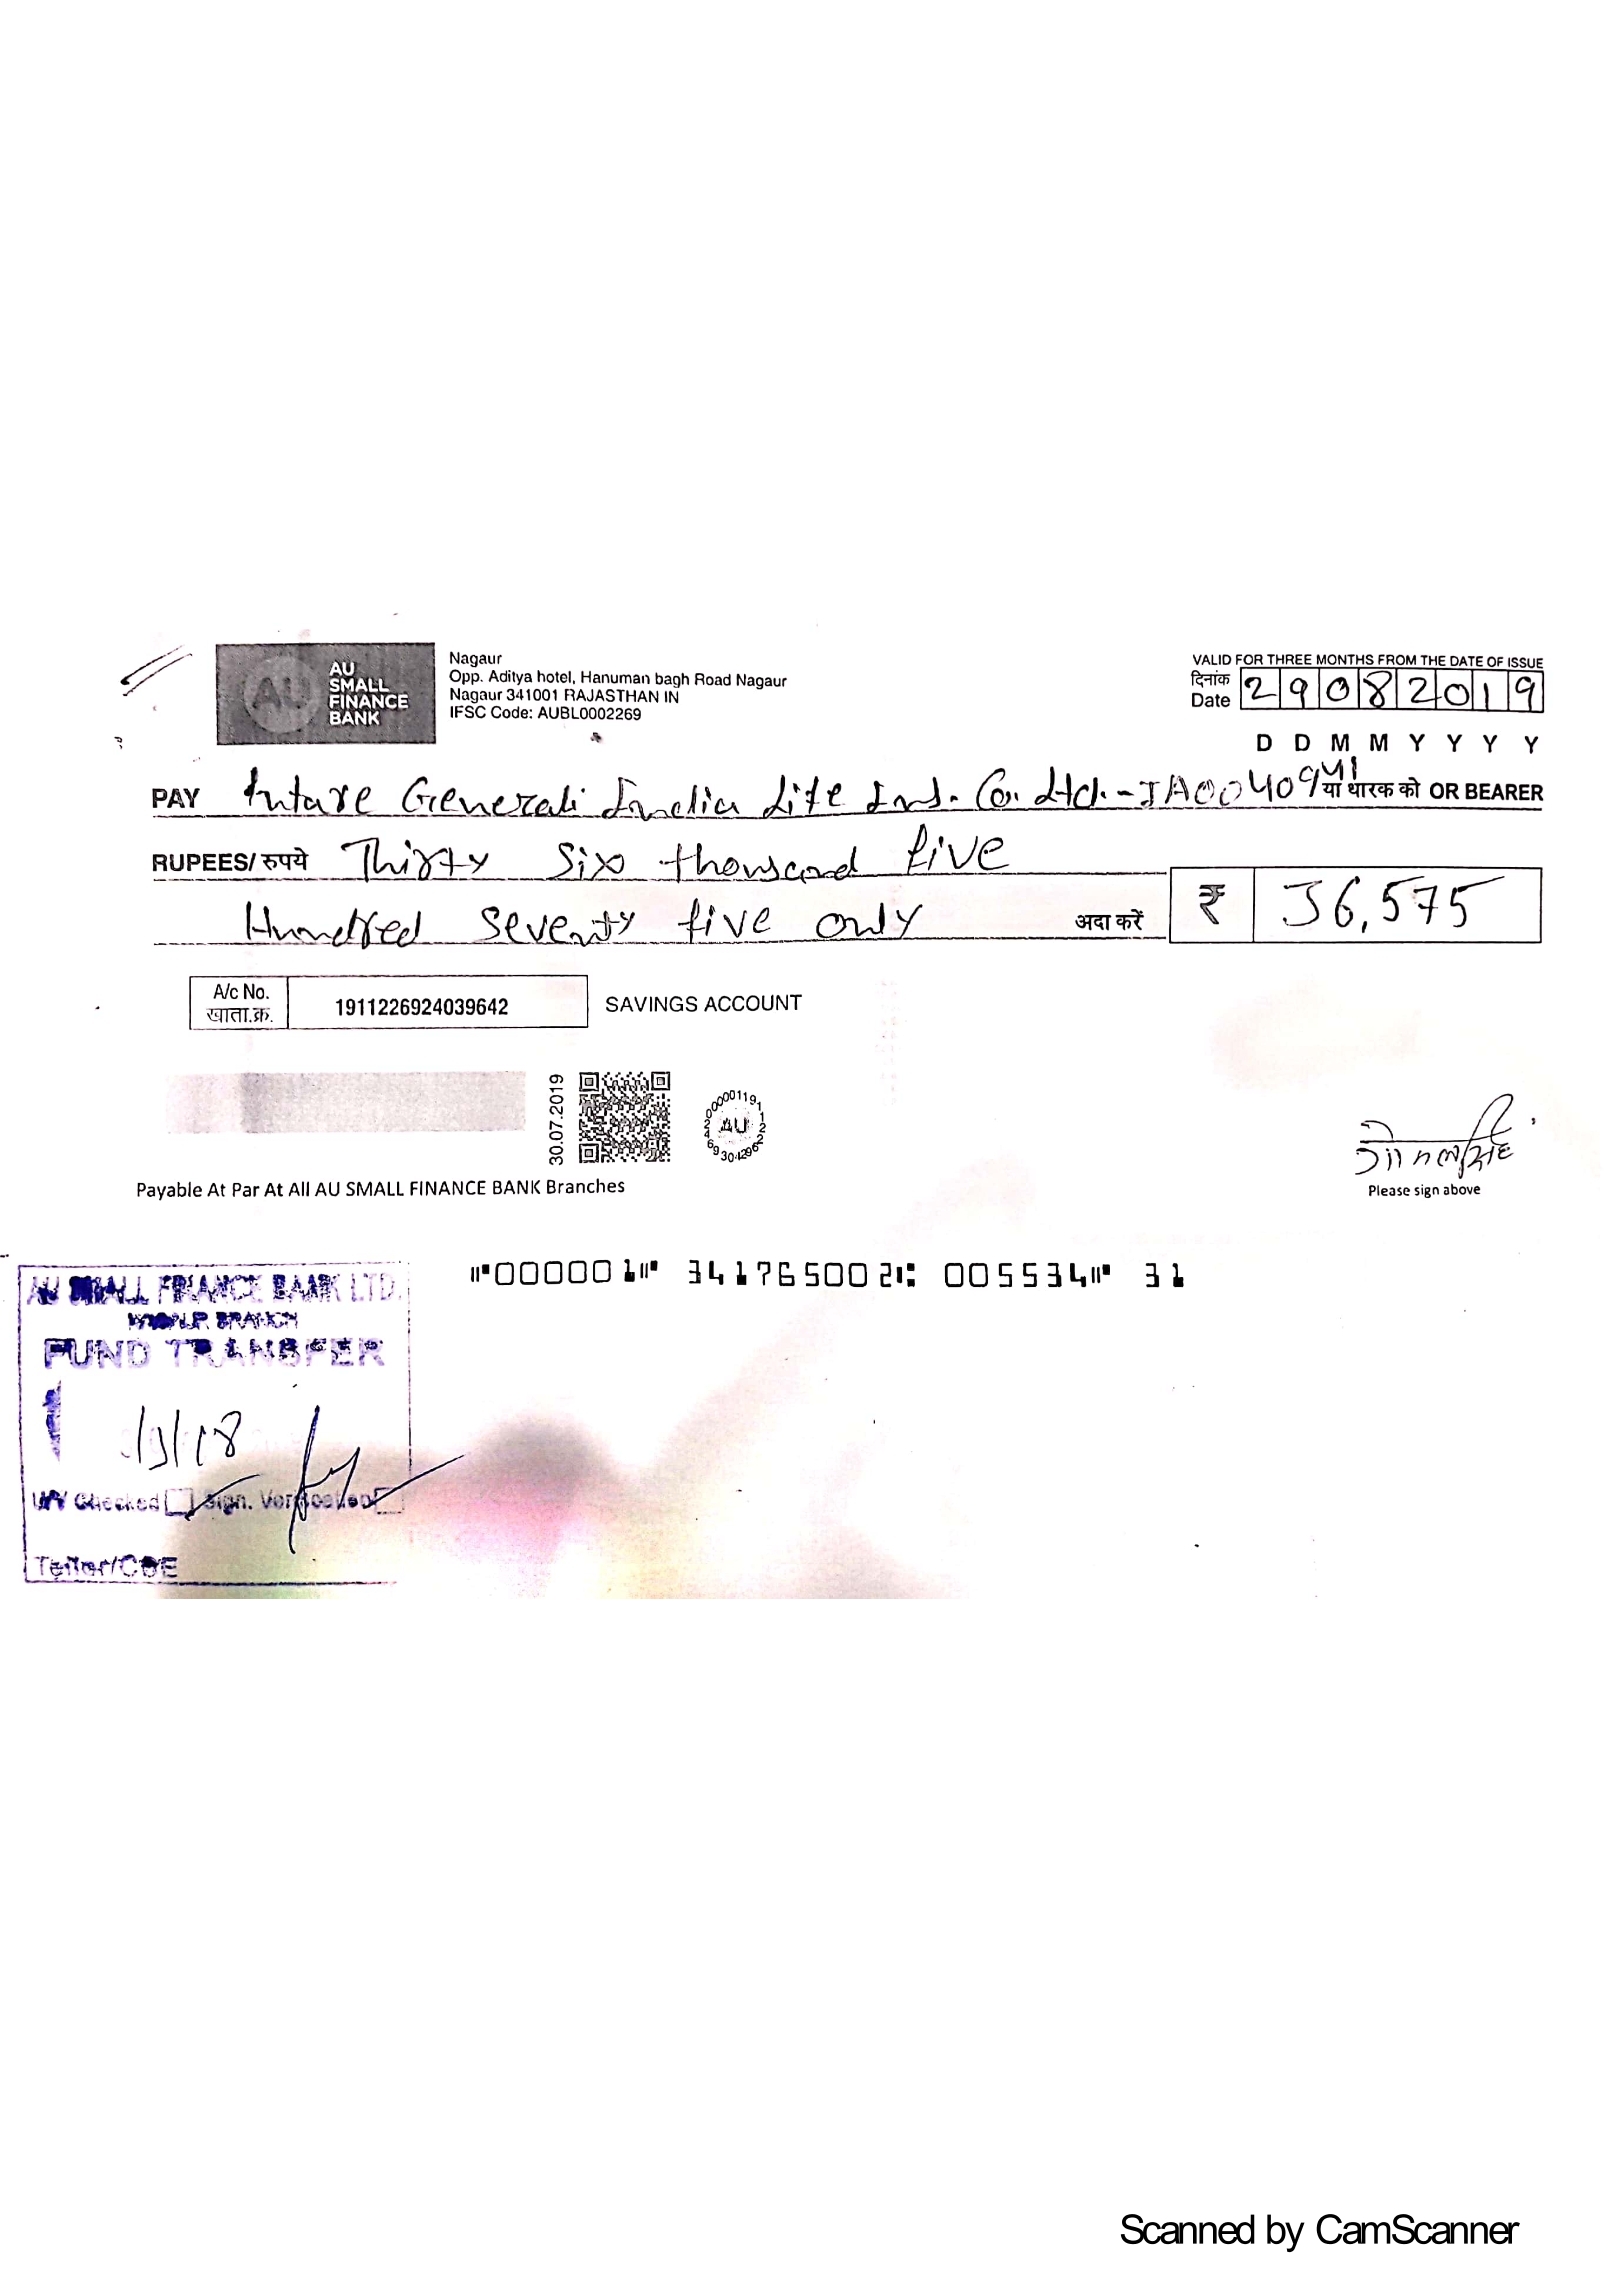 AU
SMALL
FINANCE
BANK
AU
Nagaur
Opp. Aditya hotel, Hanuman bagh Road Nagaur
Nagaur 341001 RAJASTHAN IN
IFSC Code: AUBL0002269
VALID FOR THREE MONTHS FROM THE DATE OF ISSUE
दिनांक
Date 29082019
D D M M Y Y Y Y
PAY Future Generali India Life Ins. Co. Ltd. - JA0040941 या धारक को OR BEARER
RUPEES/ रुपये Thirty Six thousand five
Hundred seventy five only अदा करें ₹ 36,575
A/c No.
खाता.क्र.
1911226924039642
SAVINGS ACCOUNT
30.07.2019
AU
Payable At Par At All AU SMALL FINANCE BANK Branches
Please sign above
⑈000001⑈ 341765002⑆ 005534⑈ 31
AU SMALL FINANCE BANK LTD.
BRANCH
FUND TRANSFER
UV Checked Sign. Verification
Teller/CDE
Scanned by CamScanner